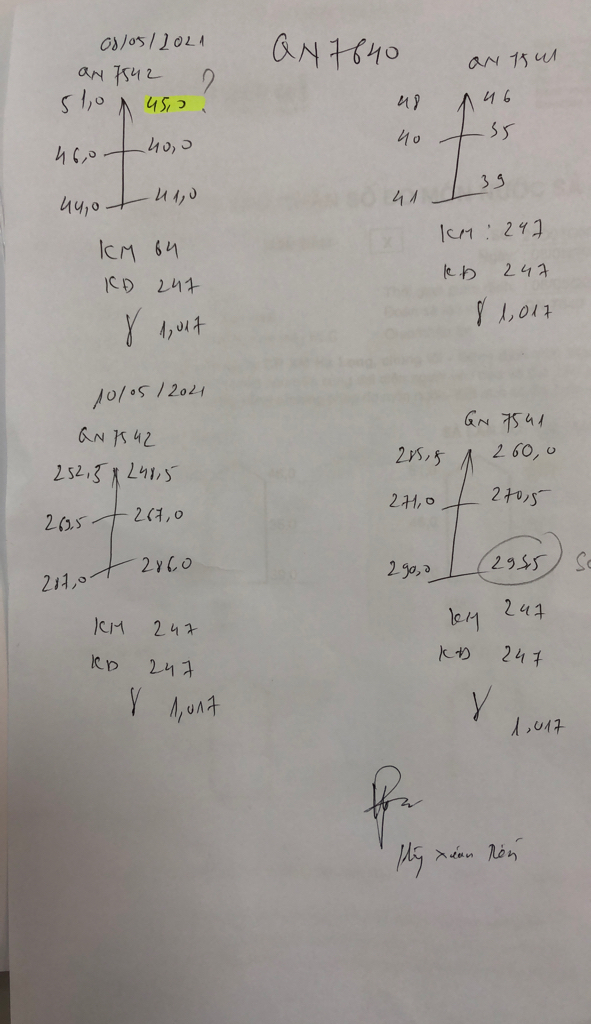 08/05/2021
QN 7640
QN 7542 ?
51,0 45,0
46,0 40,0
44,0 41,0
KM 64
KD 247
γ 1,017
QN 7541
48 46
40 35
41 39
KM : 247
KD 247
γ 1,017
10/05/2021
QN 7542
252,5 248,5
269,5 267,0
287,0 286,0
KM 247
KD 247
γ 1,017
QN 7541
285,5 260,0
271,0 270,5
290,0
KM 247
KD 247
γ 1,017